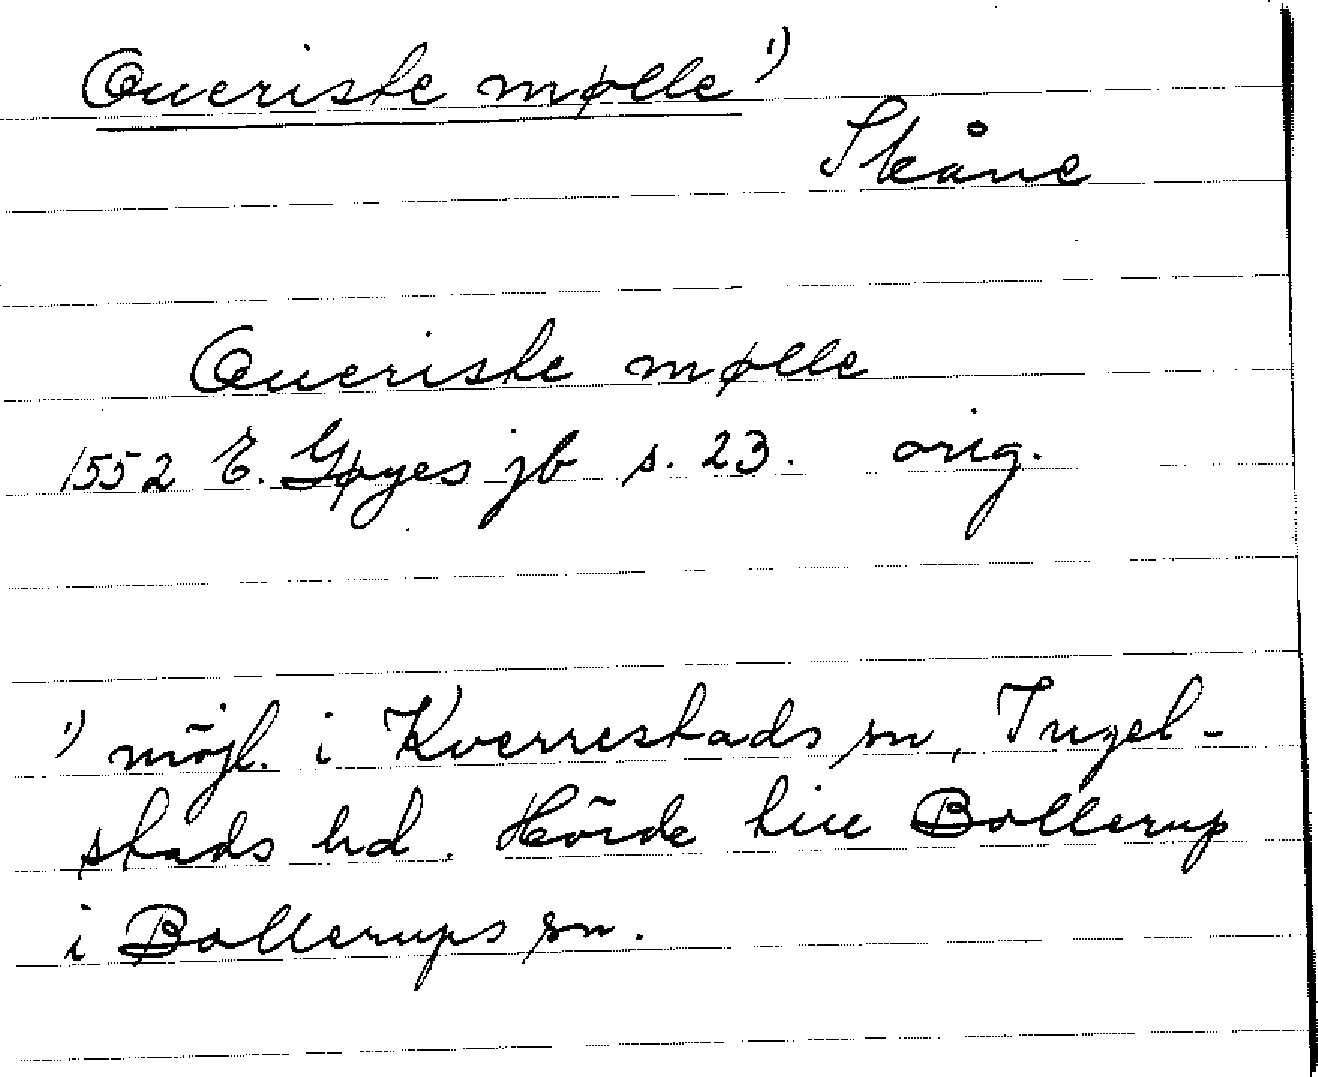 Queriske mølle ¹)
Skåne
Queriske mølle
1552 E. Gøyes jb s. 23. orig.
¹) möjl. i Kverrestads sn, Ingel-
stads hd. Hörde till Bollerup
i Bollerups sn.